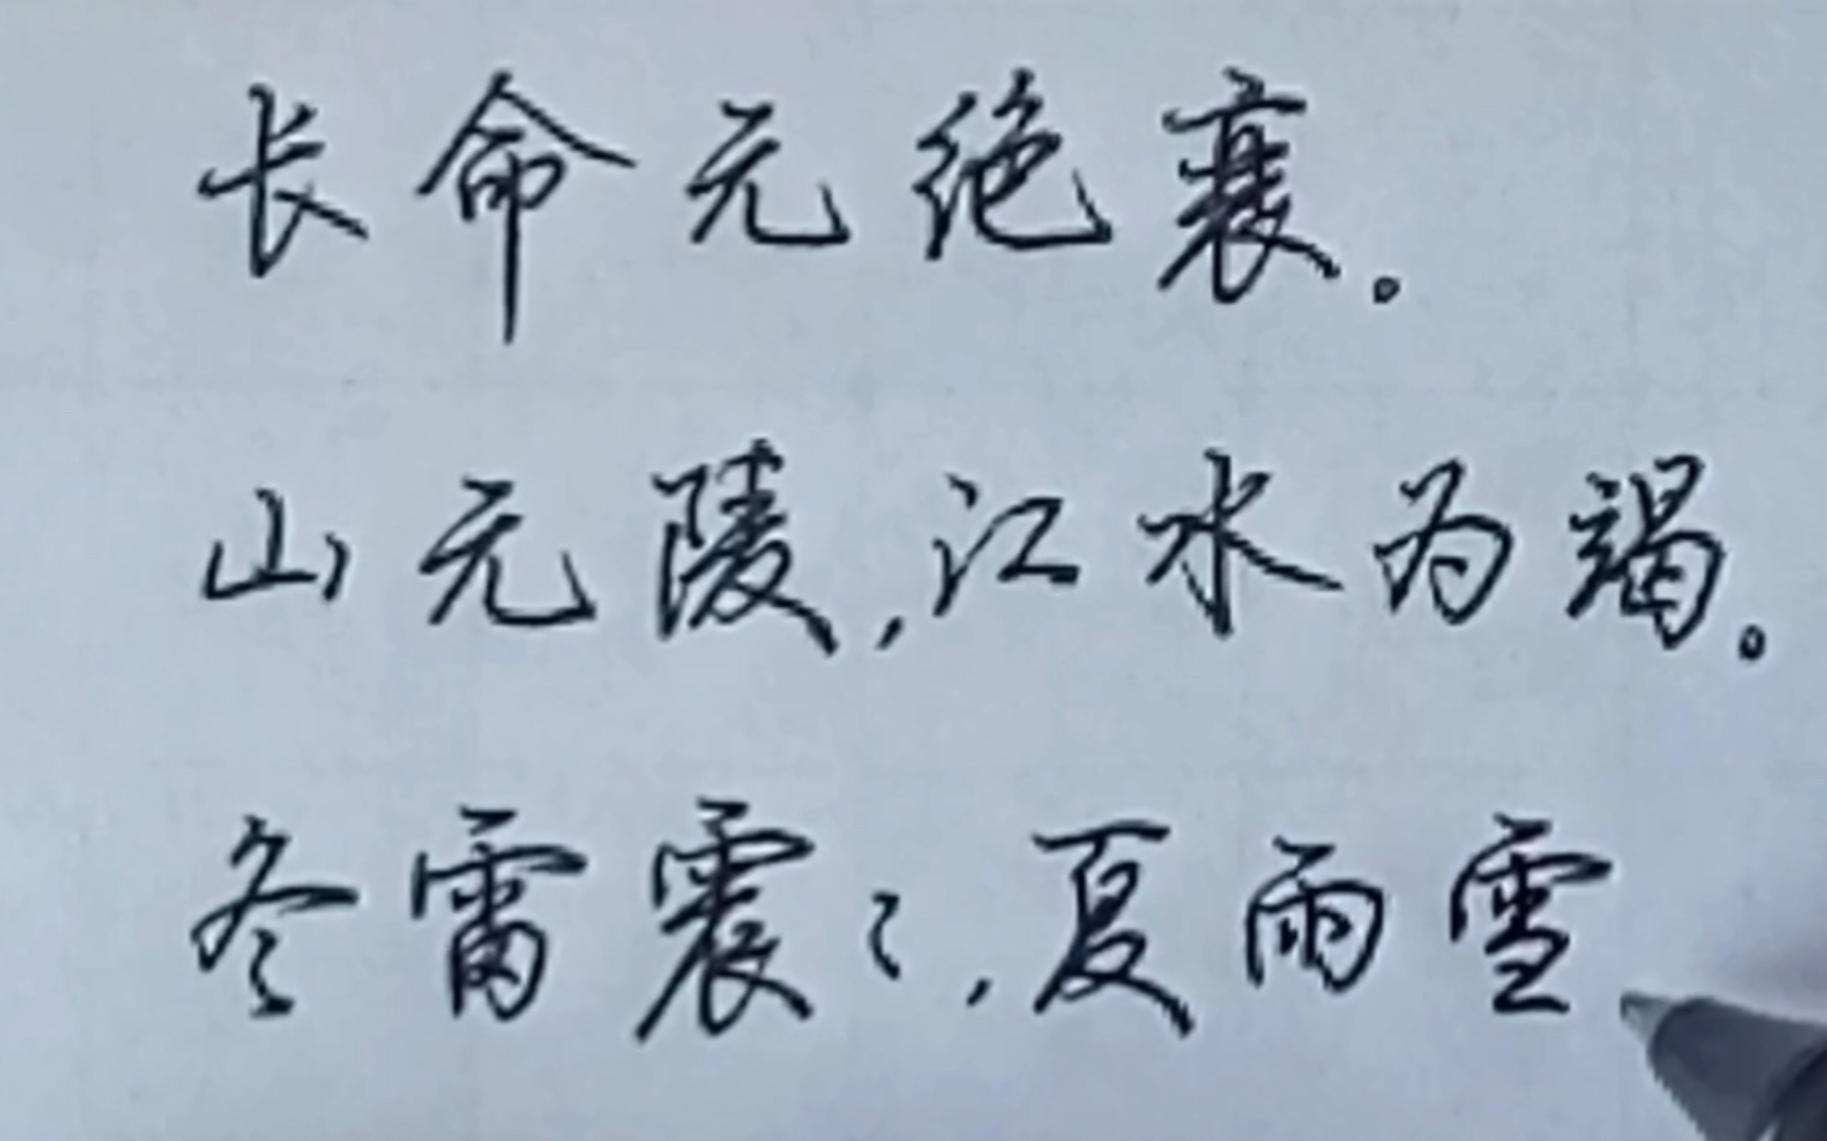 长命无绝衰。
山无陵,江水为竭。
冬雷震々,夏雨雪